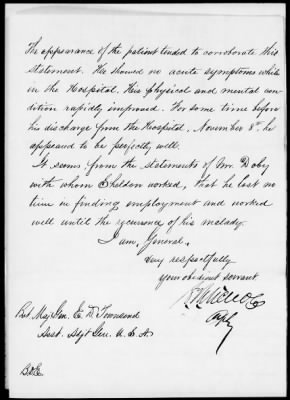 The appearance of the patient tended to corroborate this
statement. He showed no acute symptoms while
in the Hospital. His physical and mental con-
dition rapidly improved. For some time before
his discharge from the Hospital, November 8th, he
appeared to be perfectly well.
It seems from the statements of Mr. Doby
with whom Sheldon worked, that he lost no
time in finding employment and worked
well until the recurrence of his malady.
I am, General,
very respectfully
your obedient servant
Bvt Maj. Gen. E. D. Townsend
Asst. Adjt Gen. U. S. A.